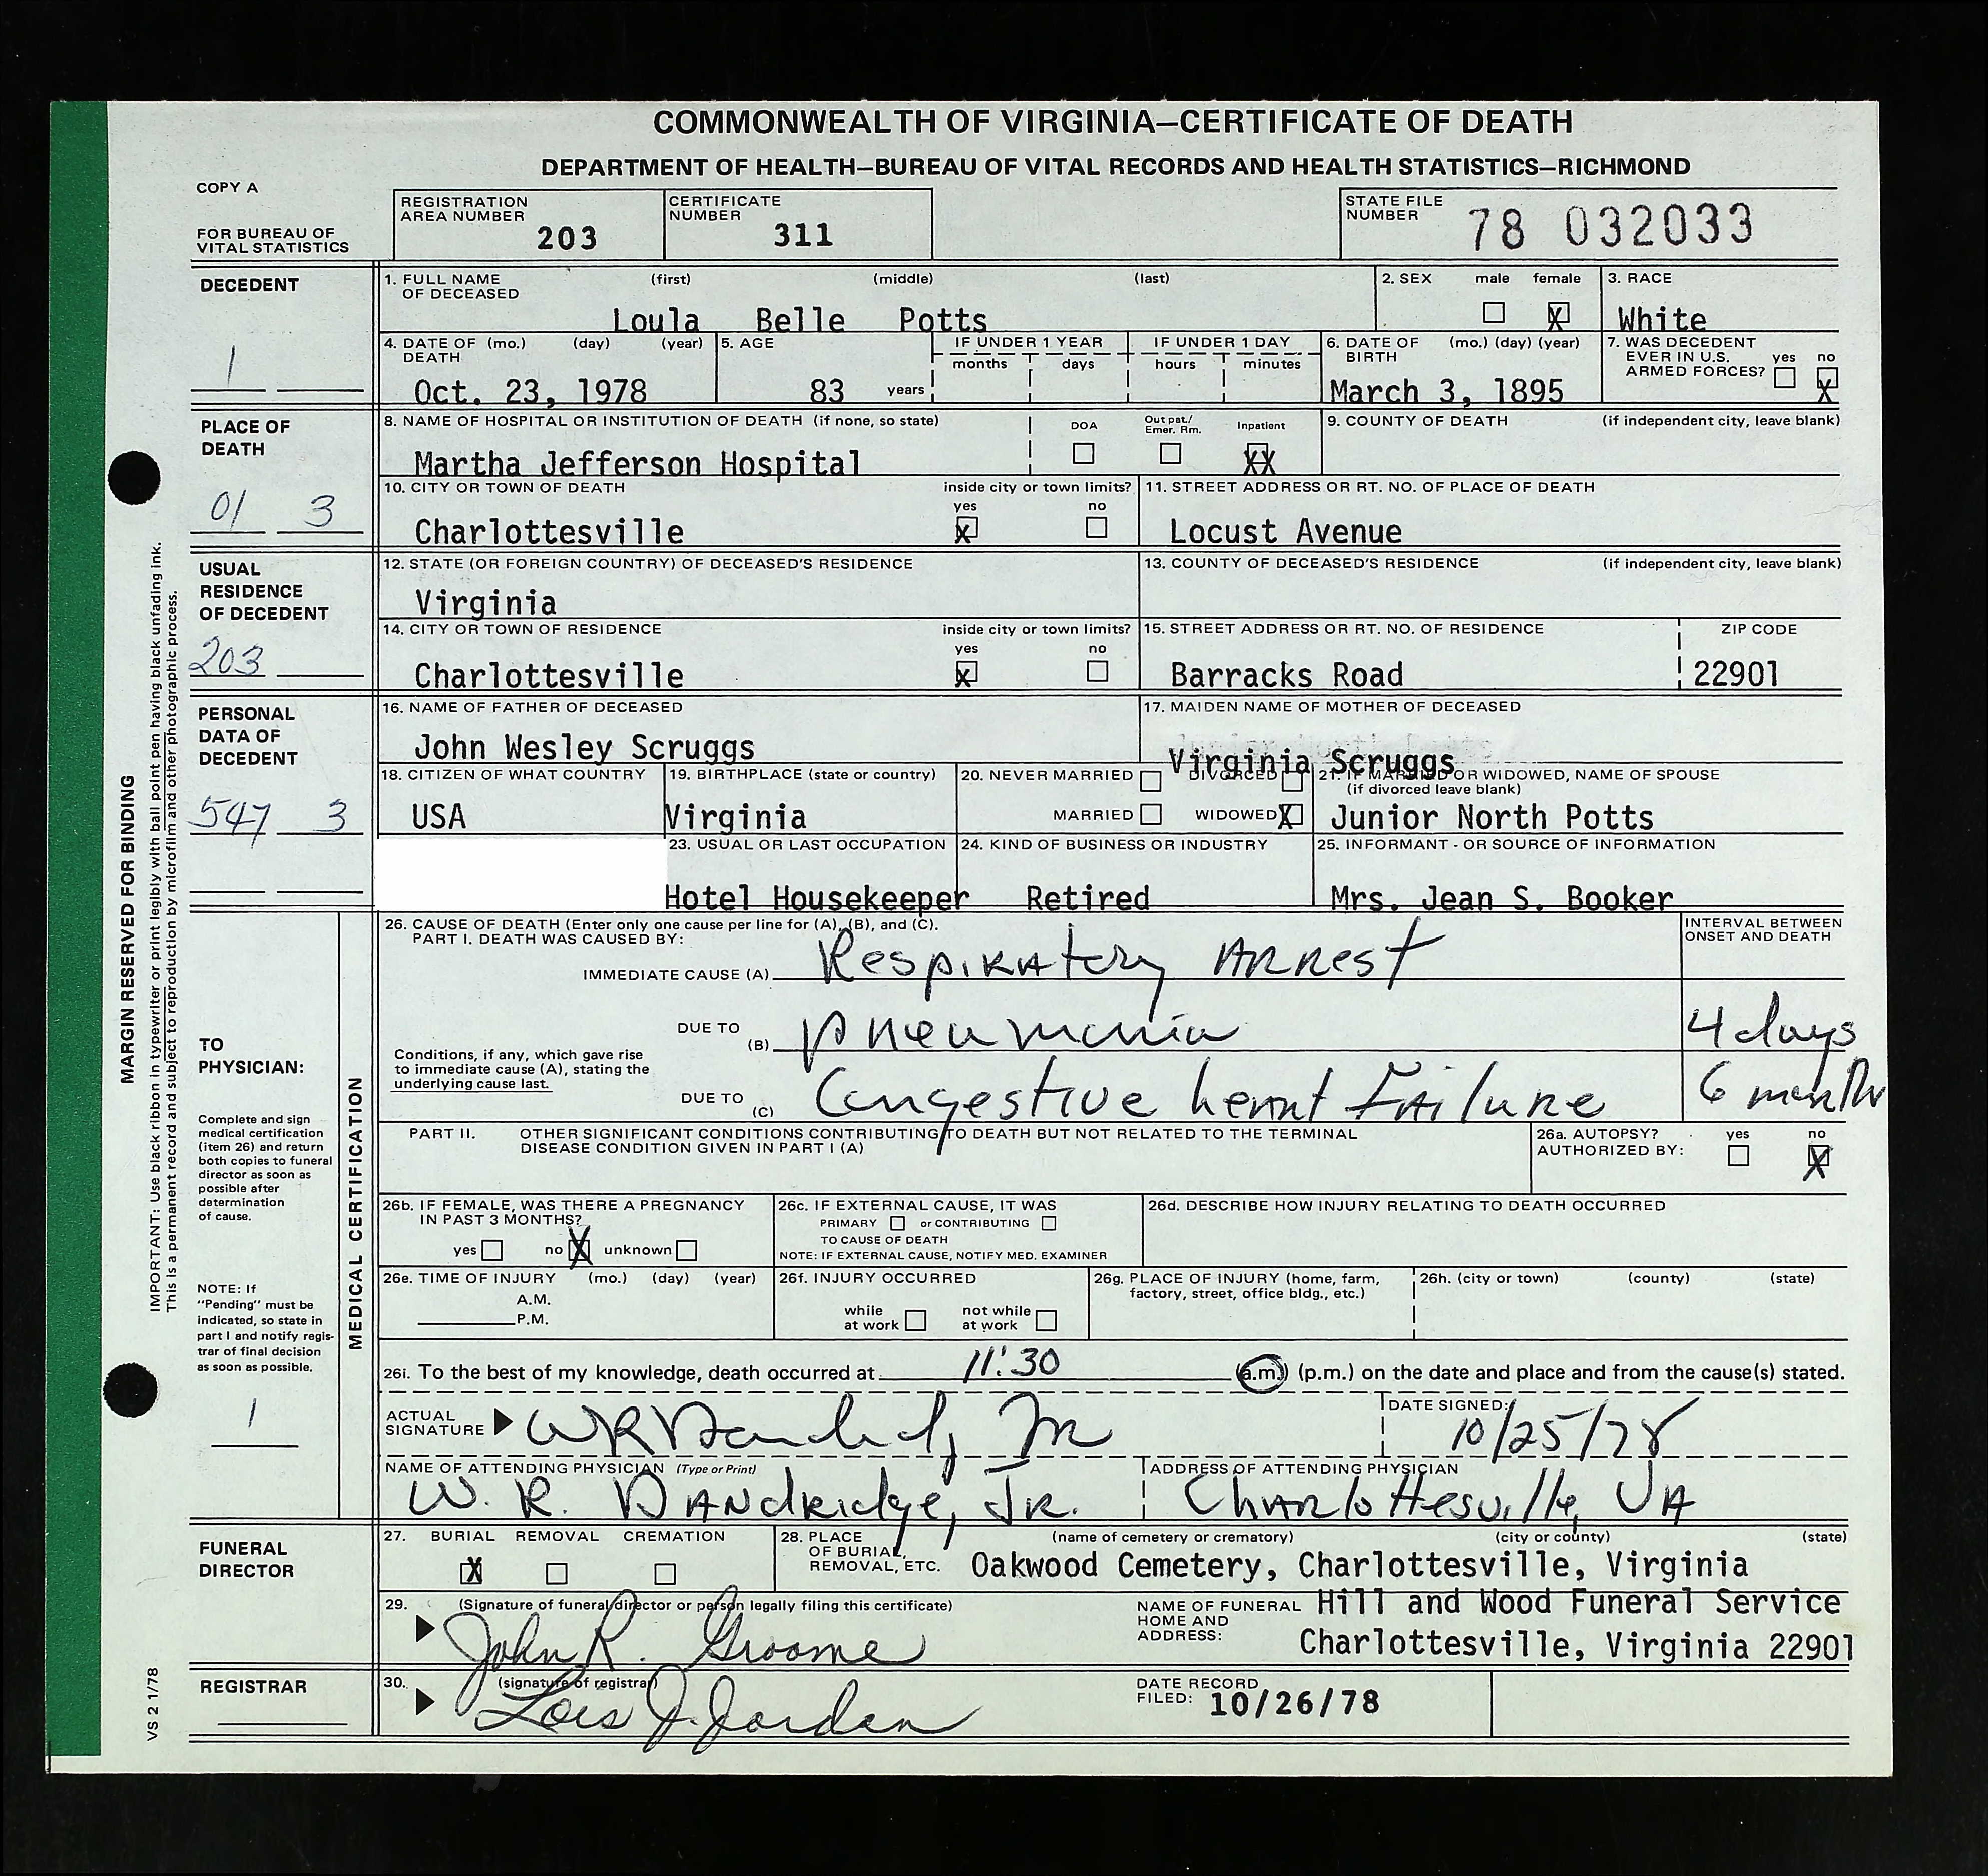 COMMONWEALTH OF VIRGINIA—CERTIFICATE OF DEATH
DEPARTMENT OF HEALTH—BUREAU OF VITAL RECORDS AND HEALTH STATISTICS—RICHMOND
COPY A
FOR BUREAU OF
VITAL STATISTICS
REGISTRATION
AREA NUMBER 203
CERTIFICATE
NUMBER 311
STATE FILE
NUMBER 78 032033
DECEDENT
1
1. FULL NAME (first) (middle) (last)
OF DECEASED
Loula Belle Potts
2. SEX male female
X
3. RACE
White
4. DATE OF (mo.) (day) (year)
DEATH
Oct. 23, 1978
5. AGE
83 years
IF UNDER 1 YEAR
months days
IF UNDER 1 DAY
hours minutes
6. DATE OF (mo.) (day) (year)
BIRTH
March 3, 1895
7. WAS DECEDENT
EVER IN U.S. yes no
ARMED FORCES? X
PLACE OF
DEATH
01 3
8. NAME OF HOSPITAL OR INSTITUTION OF DEATH (if none, so state)
Martha Jefferson Hospital
DOA Out pat./ Inpatient
Emer. Rm.
XX
9. COUNTY OF DEATH (if independent city, leave blank)
10. CITY OR TOWN OF DEATH inside city or town limits?
yes no
Charlottesville X
11. STREET ADDRESS OR RT. NO. OF PLACE OF DEATH
Locust Avenue
USUAL
RESIDENCE
OF DECEDENT
203
12. STATE (OR FOREIGN COUNTRY) OF DECEASED'S RESIDENCE
Virginia
13. COUNTY OF DECEASED'S RESIDENCE (if independent city, leave blank)
14. CITY OR TOWN OF RESIDENCE inside city or town limits?
yes no
Charlottesville X
15. STREET ADDRESS OR RT. NO. OF RESIDENCE ZIP CODE
Barracks Road 22901
PERSONAL
DATA OF
DECEDENT
547 3
16. NAME OF FATHER OF DECEASED
John Wesley Scruggs
17. MAIDEN NAME OF MOTHER OF DECEASED
Virginia Scruggs
18. CITIZEN OF WHAT COUNTRY
USA
19. BIRTHPLACE (state or country)
Virginia
20. NEVER MARRIED DIVORCED
MARRIED WIDOWED X
21. IF MARRIED OR WIDOWED, NAME OF SPOUSE
(if divorced leave blank)
Junior North Potts
23. USUAL OR LAST OCCUPATION
Hotel Housekeeper
24. KIND OF BUSINESS OR INDUSTRY
Retired
25. INFORMANT - OR SOURCE OF INFORMATION
Mrs. Jean S. Booker
MARGIN RESERVED FOR BINDING
IMPORTANT: Use black ribbon in typewriter or print legibly with ball point pen having black unfading ink.
This is a permanent record and subject to reproduction by microfilm and other photographic process.
VS 2 1/78
TO
PHYSICIAN:
Complete and sign
medical certification
(item 26) and return
both copies to funeral
director as soon as
possible after
determination
of cause.
NOTE: If
"Pending" must be
indicated, so state in
part I and notify regis-
trar of final decision
as soon as possible.
1
MEDICAL CERTIFICATION
26. CAUSE OF DEATH (Enter only one cause per line for (A), (B), and (C).
PART I. DEATH WAS CAUSED BY:
INTERVAL BETWEEN
ONSET AND DEATH
IMMEDIATE CAUSE (A) Respiratory Arrest
DUE TO
(B) pneumonia 4 days
Conditions, if any, which gave rise
to immediate cause (A), stating the
underlying cause last.
DUE TO
(C) Congestive heart Failure 6 months
PART II. OTHER SIGNIFICANT CONDITIONS CONTRIBUTING TO DEATH BUT NOT RELATED TO THE TERMINAL
DISEASE CONDITION GIVEN IN PART I (A)
26a. AUTOPSY? yes no
AUTHORIZED BY: X
26b. IF FEMALE, WAS THERE A PREGNANCY
IN PAST 3 MONTHS?
yes no X unknown
26c. IF EXTERNAL CAUSE, IT WAS
PRIMARY or CONTRIBUTING
TO CAUSE OF DEATH
NOTE: IF EXTERNAL CAUSE, NOTIFY MED. EXAMINER
26d. DESCRIBE HOW INJURY RELATING TO DEATH OCCURRED
26e. TIME OF INJURY (mo.) (day) (year)
A.M.
P.M.
26f. INJURY OCCURRED
while not while
at work at work
26g. PLACE OF INJURY (home, farm,
factory, street, office bldg., etc.)
26h. (city or town) (county) (state)
26i. To the best of my knowledge, death occurred at 11:30 (a.m.) (p.m.) on the date and place and from the cause(s) stated.
ACTUAL
SIGNATURE WR Dandridge, Jr
DATE SIGNED:
10/25/78
NAME OF ATTENDING PHYSICIAN (Type or Print)
W. R. DANdridge, JR.
ADDRESS OF ATTENDING PHYSICIAN
Charlottesville, VA
FUNERAL
DIRECTOR
27. BURIAL REMOVAL CREMATION
X
28. PLACE (name of cemetery or crematory) (city or county) (state)
OF BURIAL,
REMOVAL, ETC. Oakwood Cemetery, Charlottesville, Virginia
29. (Signature of funeral director or person legally filing this certificate)
John R. Groome
NAME OF FUNERAL Hill and Wood Funeral Service
HOME AND
ADDRESS: Charlottesville, Virginia 22901
REGISTRAR
30. (signature of registrar)
Lois J. Jordan
DATE RECORD
FILED: 10/26/78